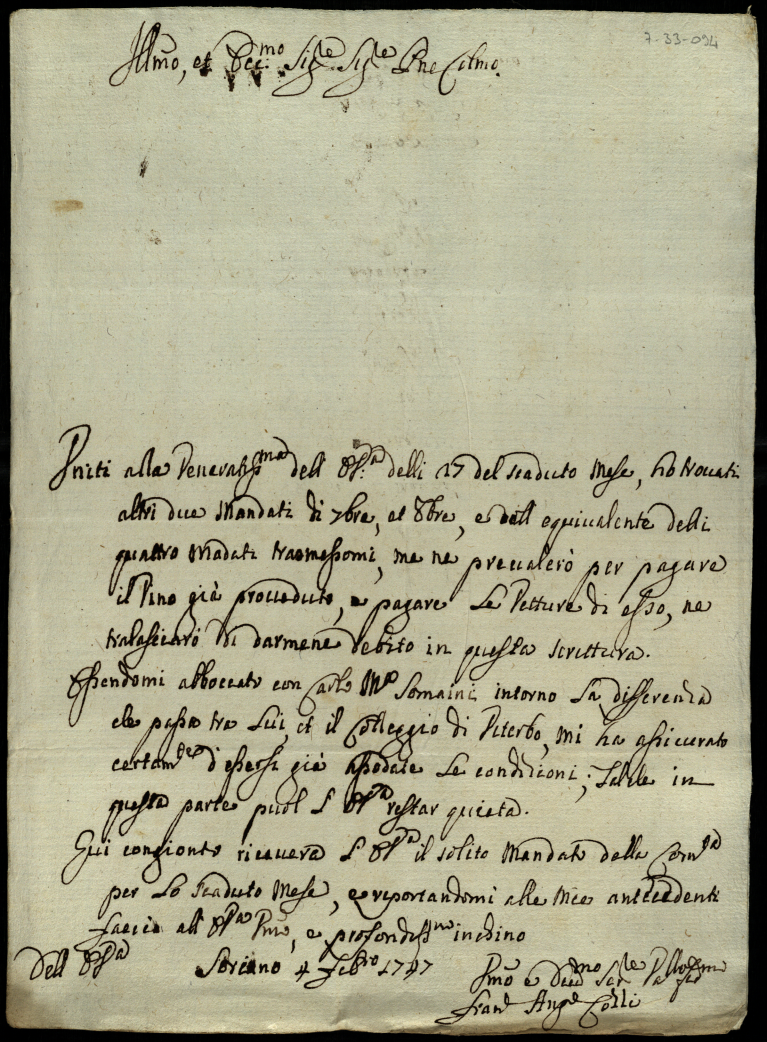 7-33-094
Illmo, et Ecc.mo Sig.re Sig.re Pne Colmo.
Uniti alla Veneratis.ma dell' V.S. delli 27 del scaduto Mese, ho trovati
altri due Mandati di 7bre, et 8bre, e dall' equivalente delli
quattro Mādati trasmessomi, me ne prevalerò per pagare
il Vino già proveduto, e pagare le Vetture di esso, ne
tralasciarò di darmene debito in questa scrittura.
Essendomi abboccato con Carlo M.a Somaini intorno la differenza
che passa tra lui, et il Colleggio di Viterbo, mi ha assicurato
certam.te d'essersi già assodate le condizioni; Talche in
questa parte puol restar quieta.
Qui congionto riceverà il solito Mandato della Com.tà
per lo scaduto Mese, e riportandomi alle mie antecedenti
faccio all' um̃o, e profondiss.mo inchino
Dell'
Soriano 4 Feb.ro 1747
Um̃o e Dev.mo Ser.re
Fran.o Ang.o Colli